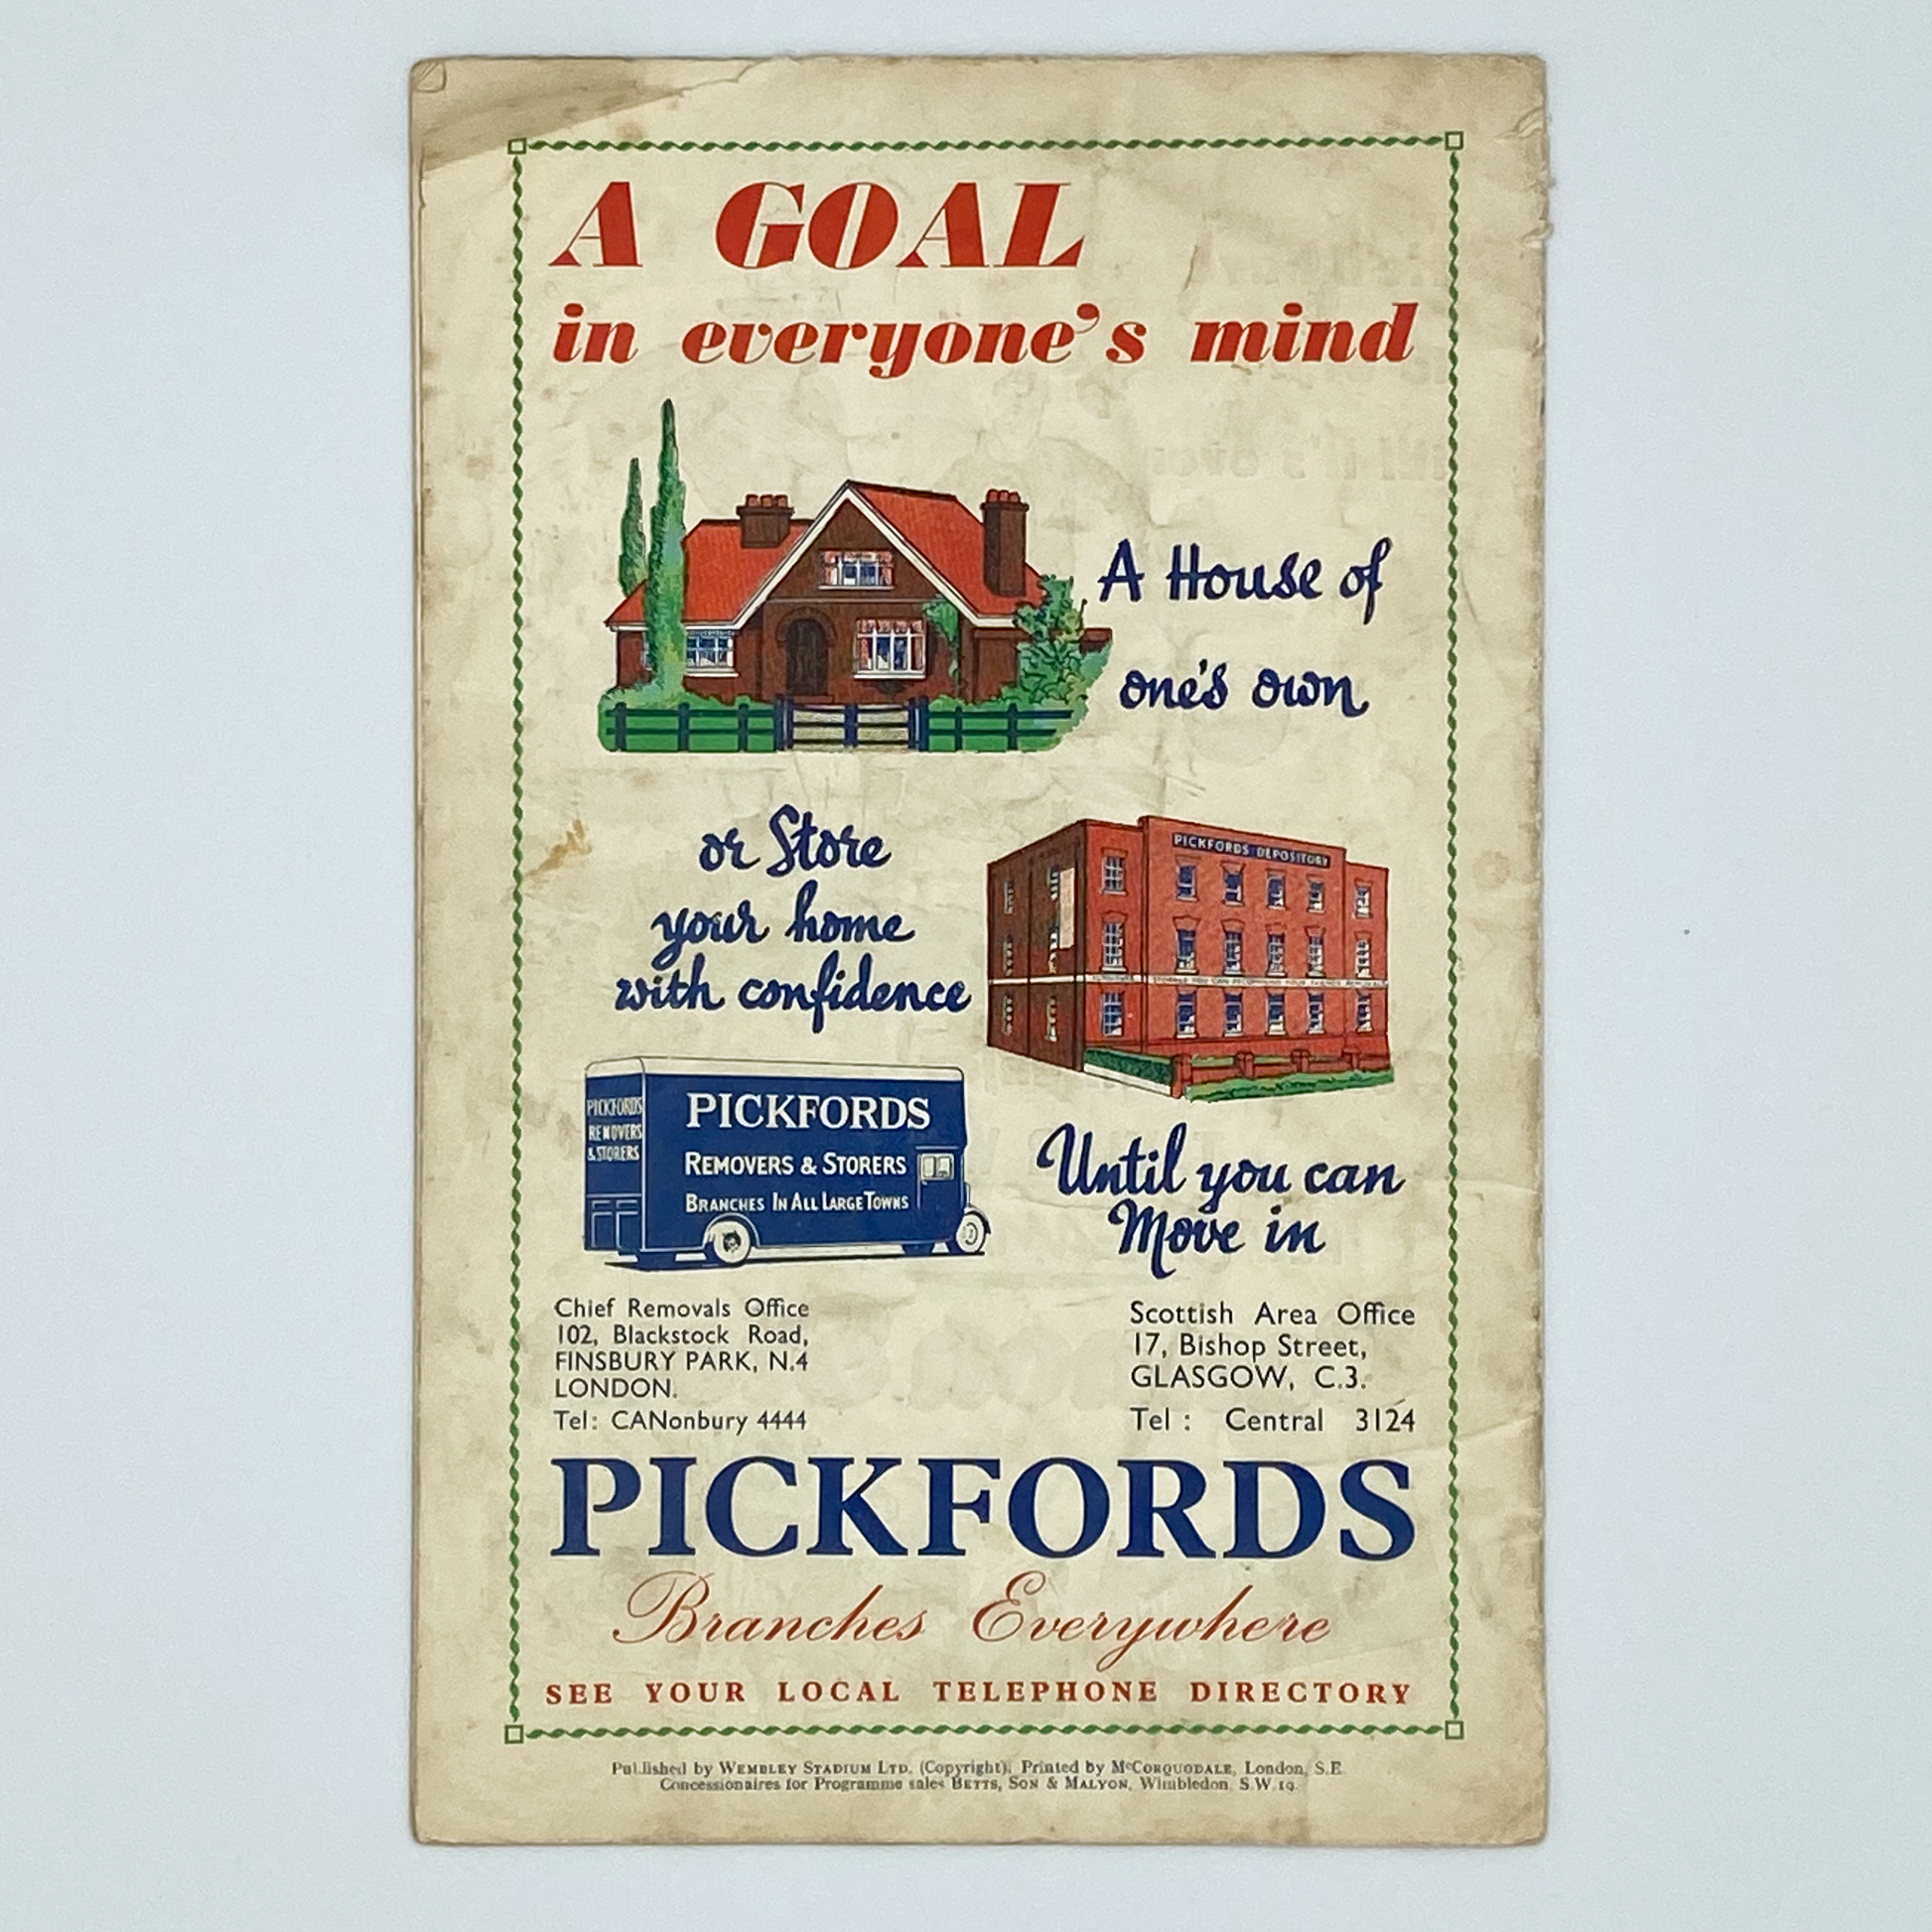 A GOAL
in everyone's mind
A House of
one's own
or Store
your home
with confidence
PICKFORDS DEPOSITORY
STORAGE YOU CAN RECOMMEND YOUR FRIENDS REMOVALS
PICKFORDS
REMOVERS
& STORERS
PICKFORDS
REMOVERS & STORERS
BRANCHES IN ALL LARGE TOWNS
Until you can
Move in
Chief Removals Office
102, Blackstock Road,
FINSBURY PARK, N.4
LONDON.
Tel: CANonbury 4444
Scottish Area Office
17, Bishop Street,
GLASGOW, C.3.
Tel : Central 3124
PICKFORDS
Branches Everywhere
SEE YOUR LOCAL TELEPHONE DIRECTORY
Published by WEMBLEY STADIUM LTD. (Copyright). Printed by McCORQUODALE, London, S.E.
Concessionaires for Programme sales BETTS, SON & MALYON, Wimbledon, S.W.19.